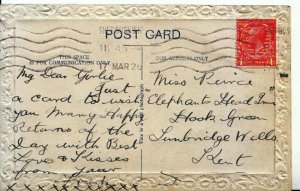 POST CARD
THIS SPACE
IS FOR COMMUNICATION ONLY
FOR ADDRESS ONLY
11. 45 PM
MAR 26
My Dear Girlie
Just
a card to wish
you Many Happy
Returns of the
Day with Best
Love & Kisses
from your
Miss Prince
"Elephants Head Inn"
Hooks Green
Tunbridge Wells
Kent